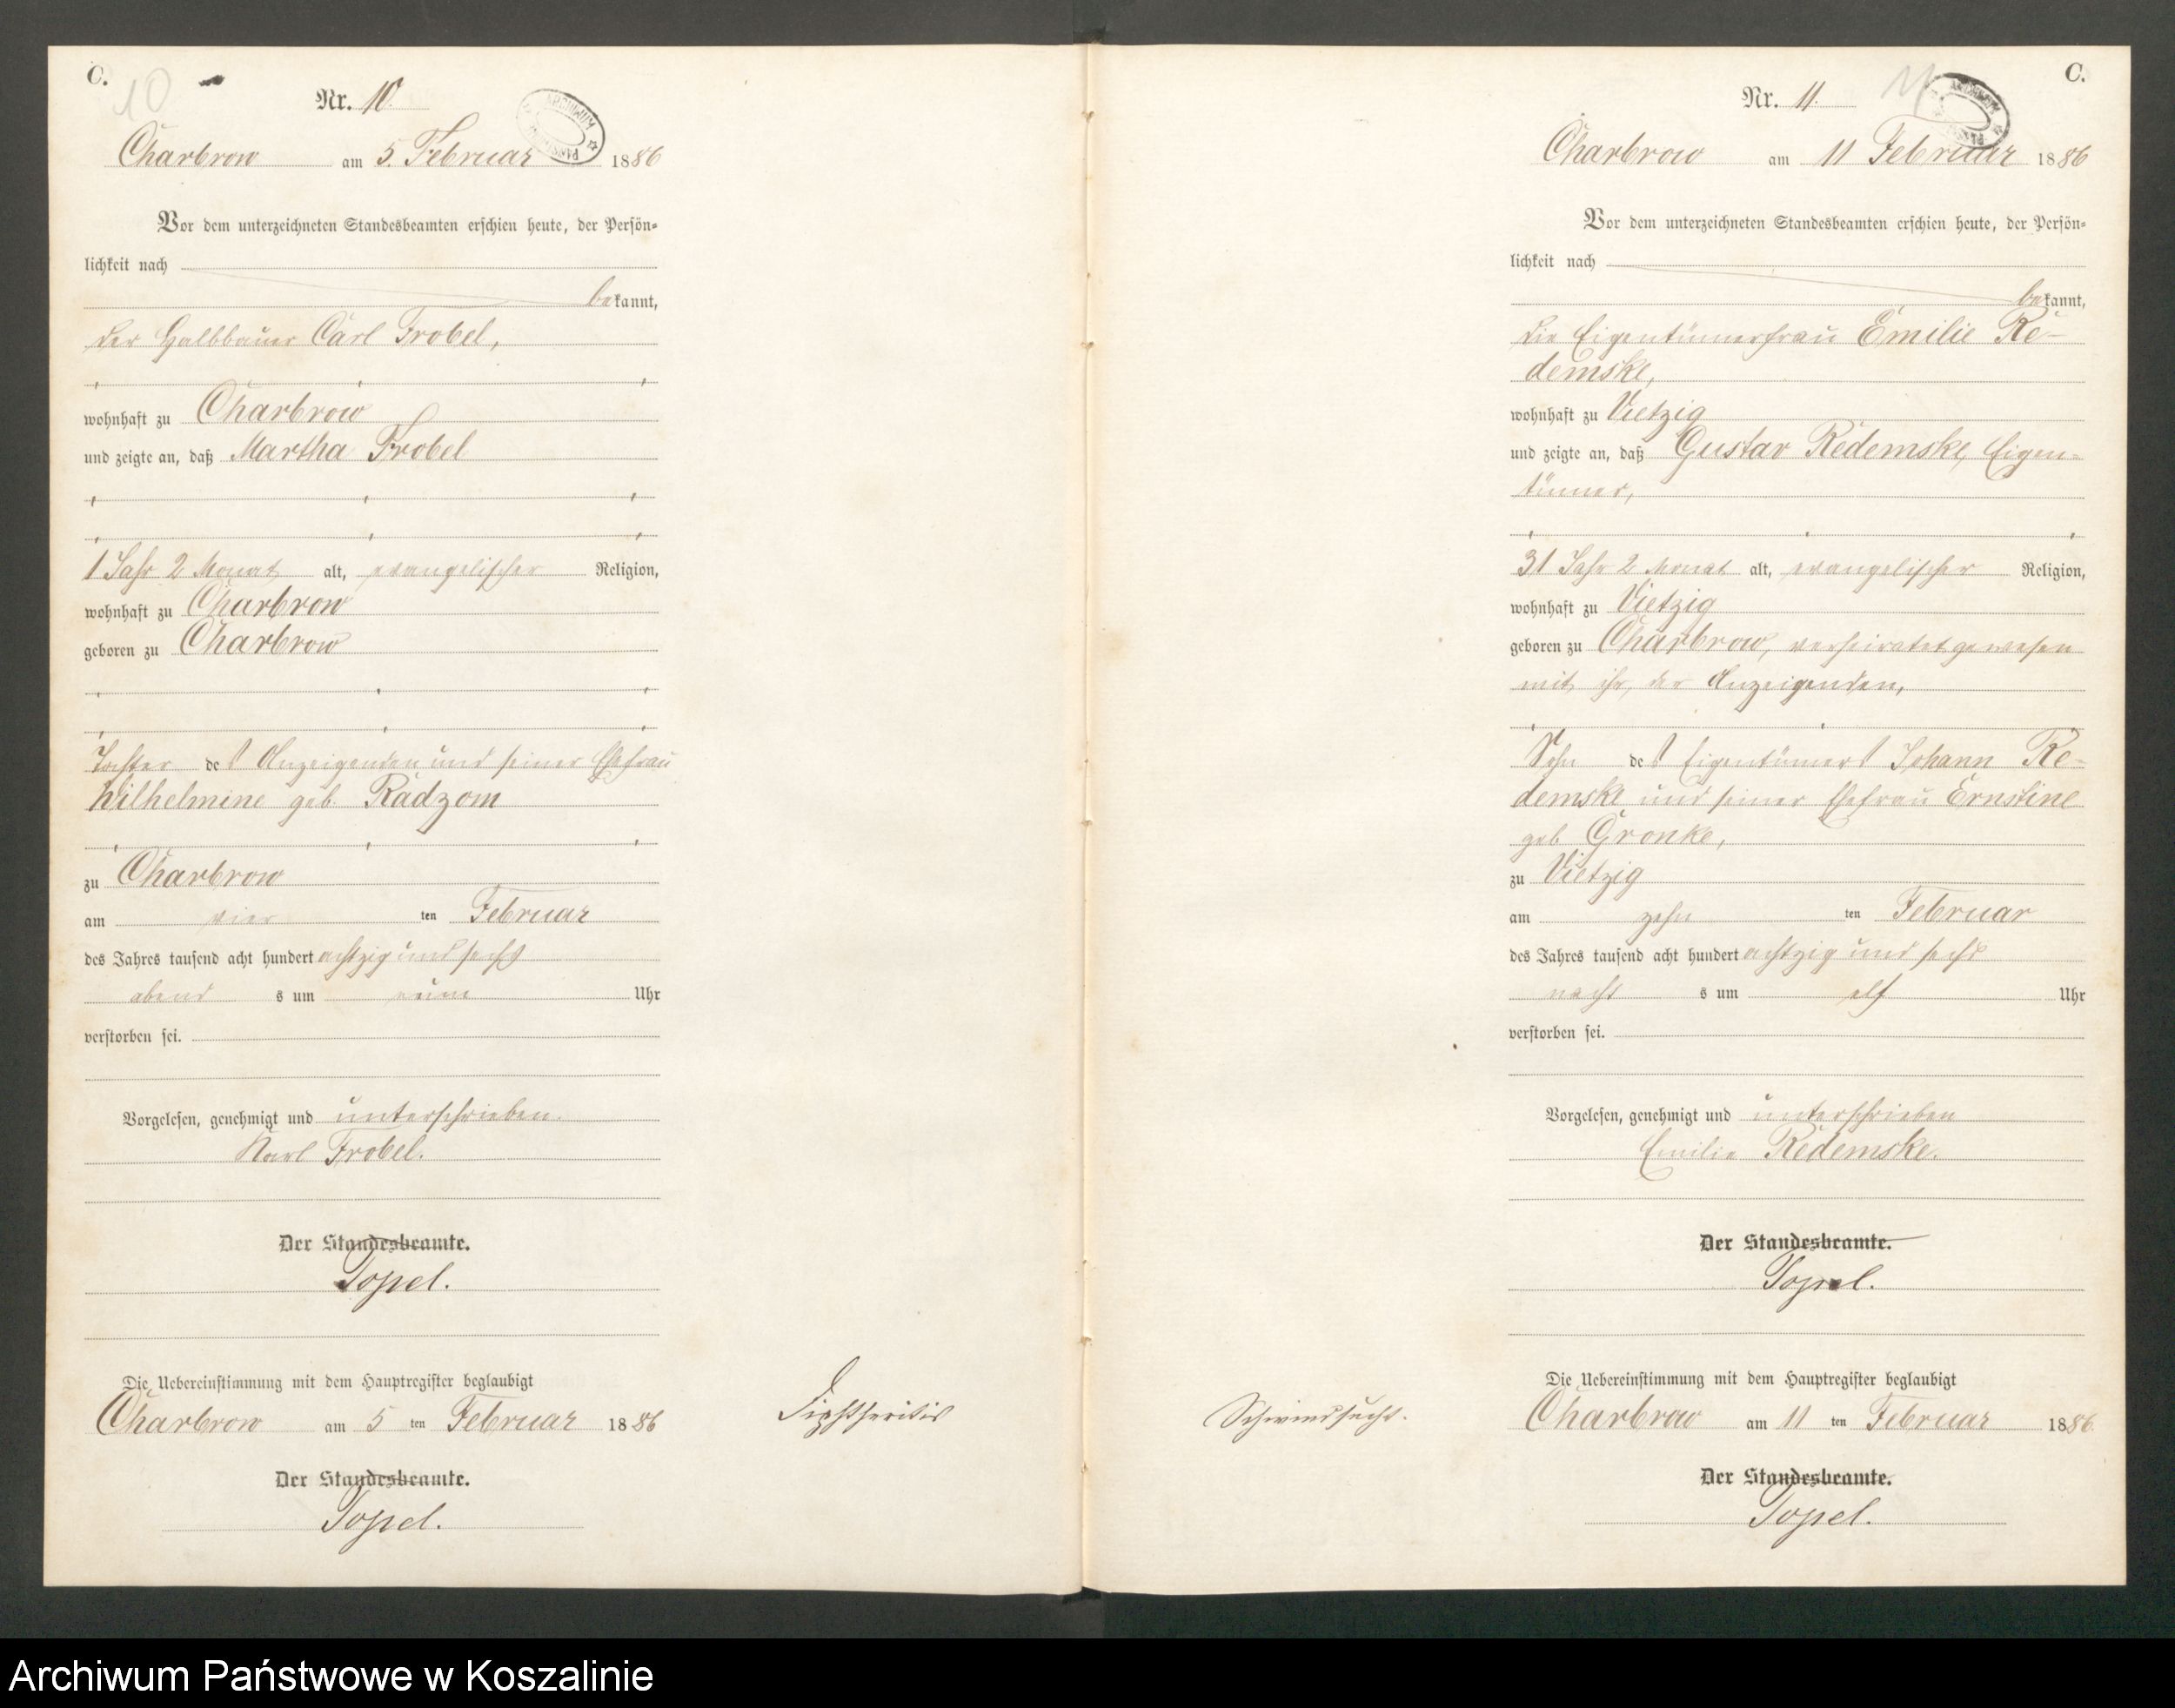 C.
10
Nr. 10.
Charbrow am 5. Februar 1886
Vor dem unterzeichneten Standesbeamten erschien heute, der Persön-
lichkeit nach
bekannt,
der Halbbauer Carl Frobel,
wohnhaft zu Charbrow
und zeigte an, daß Martha Frobel
1 Jahr 2 Monat alt, evangelischer Religion,
wohnhaft zu Charbrow
geboren zu Charbrow
Tochter des Anzeigenden und seiner Ehefrau
Wilhelmine geb. Radzom
zu Charbrow
am vier ten Februar
des Jahres tausend acht hundert achtzig und sechs
abend s um neun Uhr
verstorben sei.
Vorgelesen, genehmigt und unterschrieben.
Karl Frobel.
Der Standesbeamte.
Topel.
Die Uebereinstimmung mit dem Hauptregister beglaubigt
Charbrow am 5 ten Februar 1886
Der Standesbeamte.
Topel.
Diphtheritis
C.
11
Nr. 11.
Charbrow am 11 Februar 1886
Vor dem unterzeichneten Standesbeamten erschien heute, der Persön-
lichkeit nach
bekannt,
die Eigentümerfrau Emilie Re-
demske,
wohnhaft zu Vietzig
und zeigte an, daß Gustav Redemske, Eigen-
tümer,
31 Jahr 2 Monat alt, evangelischer Religion,
wohnhaft zu Vietzig
geboren zu Charbrow, verheiratet gewesen
mit ihr, der Anzeigenden,
Sohn des Eigentümers Johann Re-
demske und seiner Ehefrau Ernstine
geb. Gronke,
zu Vietzig
am zehn ten Februar
des Jahres tausend acht hundert achtzig und sechs
nacht s um elf Uhr
verstorben sei.
Vorgelesen, genehmigt und unterschrieben
Emilie Redemske.
Der Standesbeamte.
Topel.
Schwindsucht.
Die Uebereinstimmung mit dem Hauptregister beglaubigt
Charbrow am 11 ten Februar 1886.
Der Standesbeamte.
Topel.
Archiwum Państwowe w Koszalinie